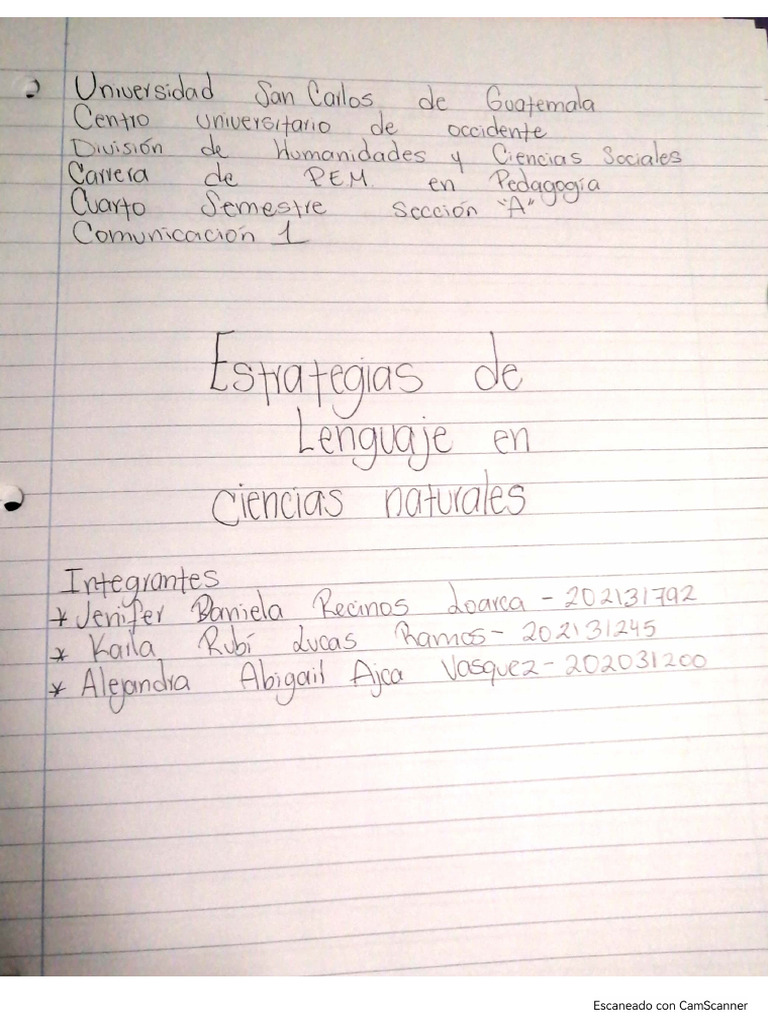 Universidad San Carlos de Guatemala
Centro universitario de occidente
División de Humanidades y Ciencias Sociales
Carrera de P.E.M. en Pedagogía
Cuarto Semestre sección "A"
Comunicación 1
Estrategias de
Lenguaje en
ciencias naturales
Integrantes
* Jenifer Daniela Recinos Loarca - 202131792
* Kaila Rubí Lucas Ramos - 202131245
* Alejandra Abigail Ajca Vasquez - 202031200
Escaneado con CamScanner